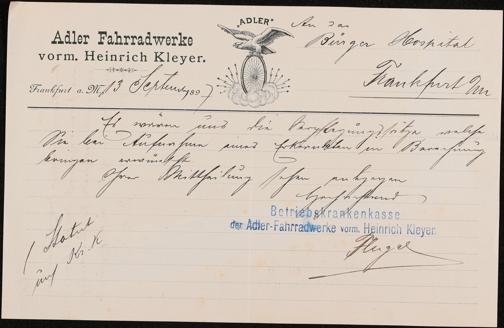 "ADLER"
Adler Fahrradwerke
vorm. Heinrich Kleyer.
Frankfurt a. M., 13 September 1897
An das
Bürger Hospital
Frankfurt a/M
Es wären uns die Verpflegungssätze welche
Sie bei Aufnahme eines Erkrankten in Berechnung
bringen erwünscht
Ihrer Mittheilung sehen entgegen
Hochachtend
Betriebskrankenkasse
der Adler-Fahrradwerke vorm. Heinrich Kleyer.
1 Statut
und